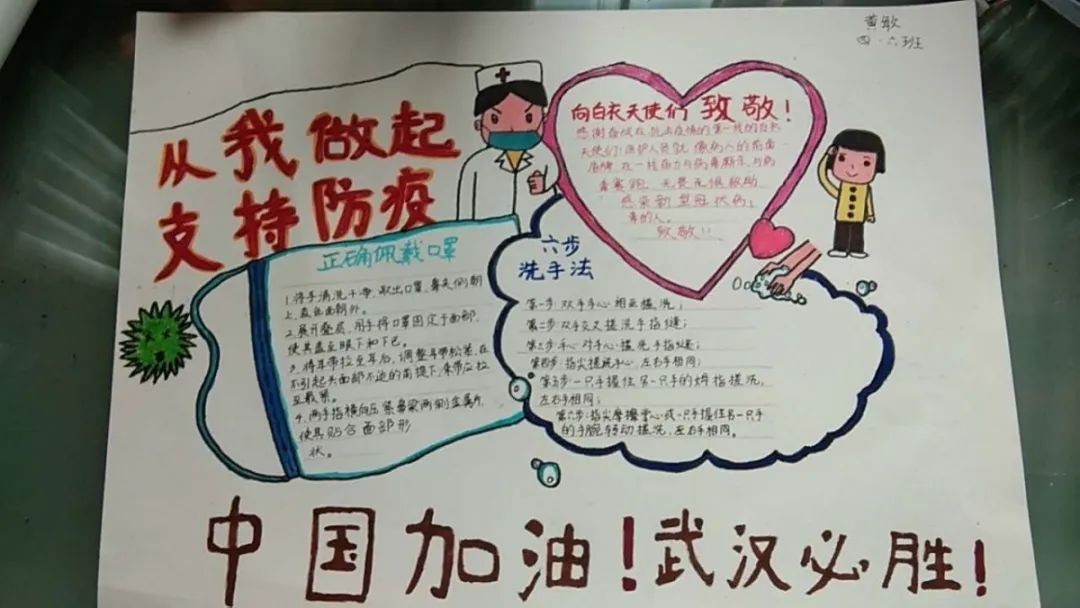 黄敏
四·六班
从我做起
支持防疫
向白衣天使们致敬!
感谢奋战在抗击疫情的第一线的白衣
天使们!医护人员就像病人的前面一
在一线奋力与病毒斯斗,与病
毒赛跑,无畏无惧救助
感染新型冠状病
毒的人。
致敬!!
正确佩戴口罩
1.将手清洗干净,取出口罩,鼻夹侧朝
上,蓝色面朝外。
2.展开叠层,用手将口罩固定于面部,
使其盖至眼下和下巴。
3.将耳带拉至耳后,调整耳带松紧,在
不引起头面部不适的前提下,束带应拉
至最紧。
4.两手指横向压紧鼻梁两侧金属片,
使其贴合面部形
状。
六步
洗手法
第一步:双手手心相互搓洗;
第二步:双手交叉搓洗手指缝;
第三步:手心对手心搓洗手指缝;
第四步:指尖搓洗手心,左右手相同;
第五步:一只手握住另一只手的拇指搓洗,
左右手相同;
第六步:指尖摩擦掌心或一只手握住另一只手
的手腕转动搓洗,左右手相同。
中国加油!武汉必胜!